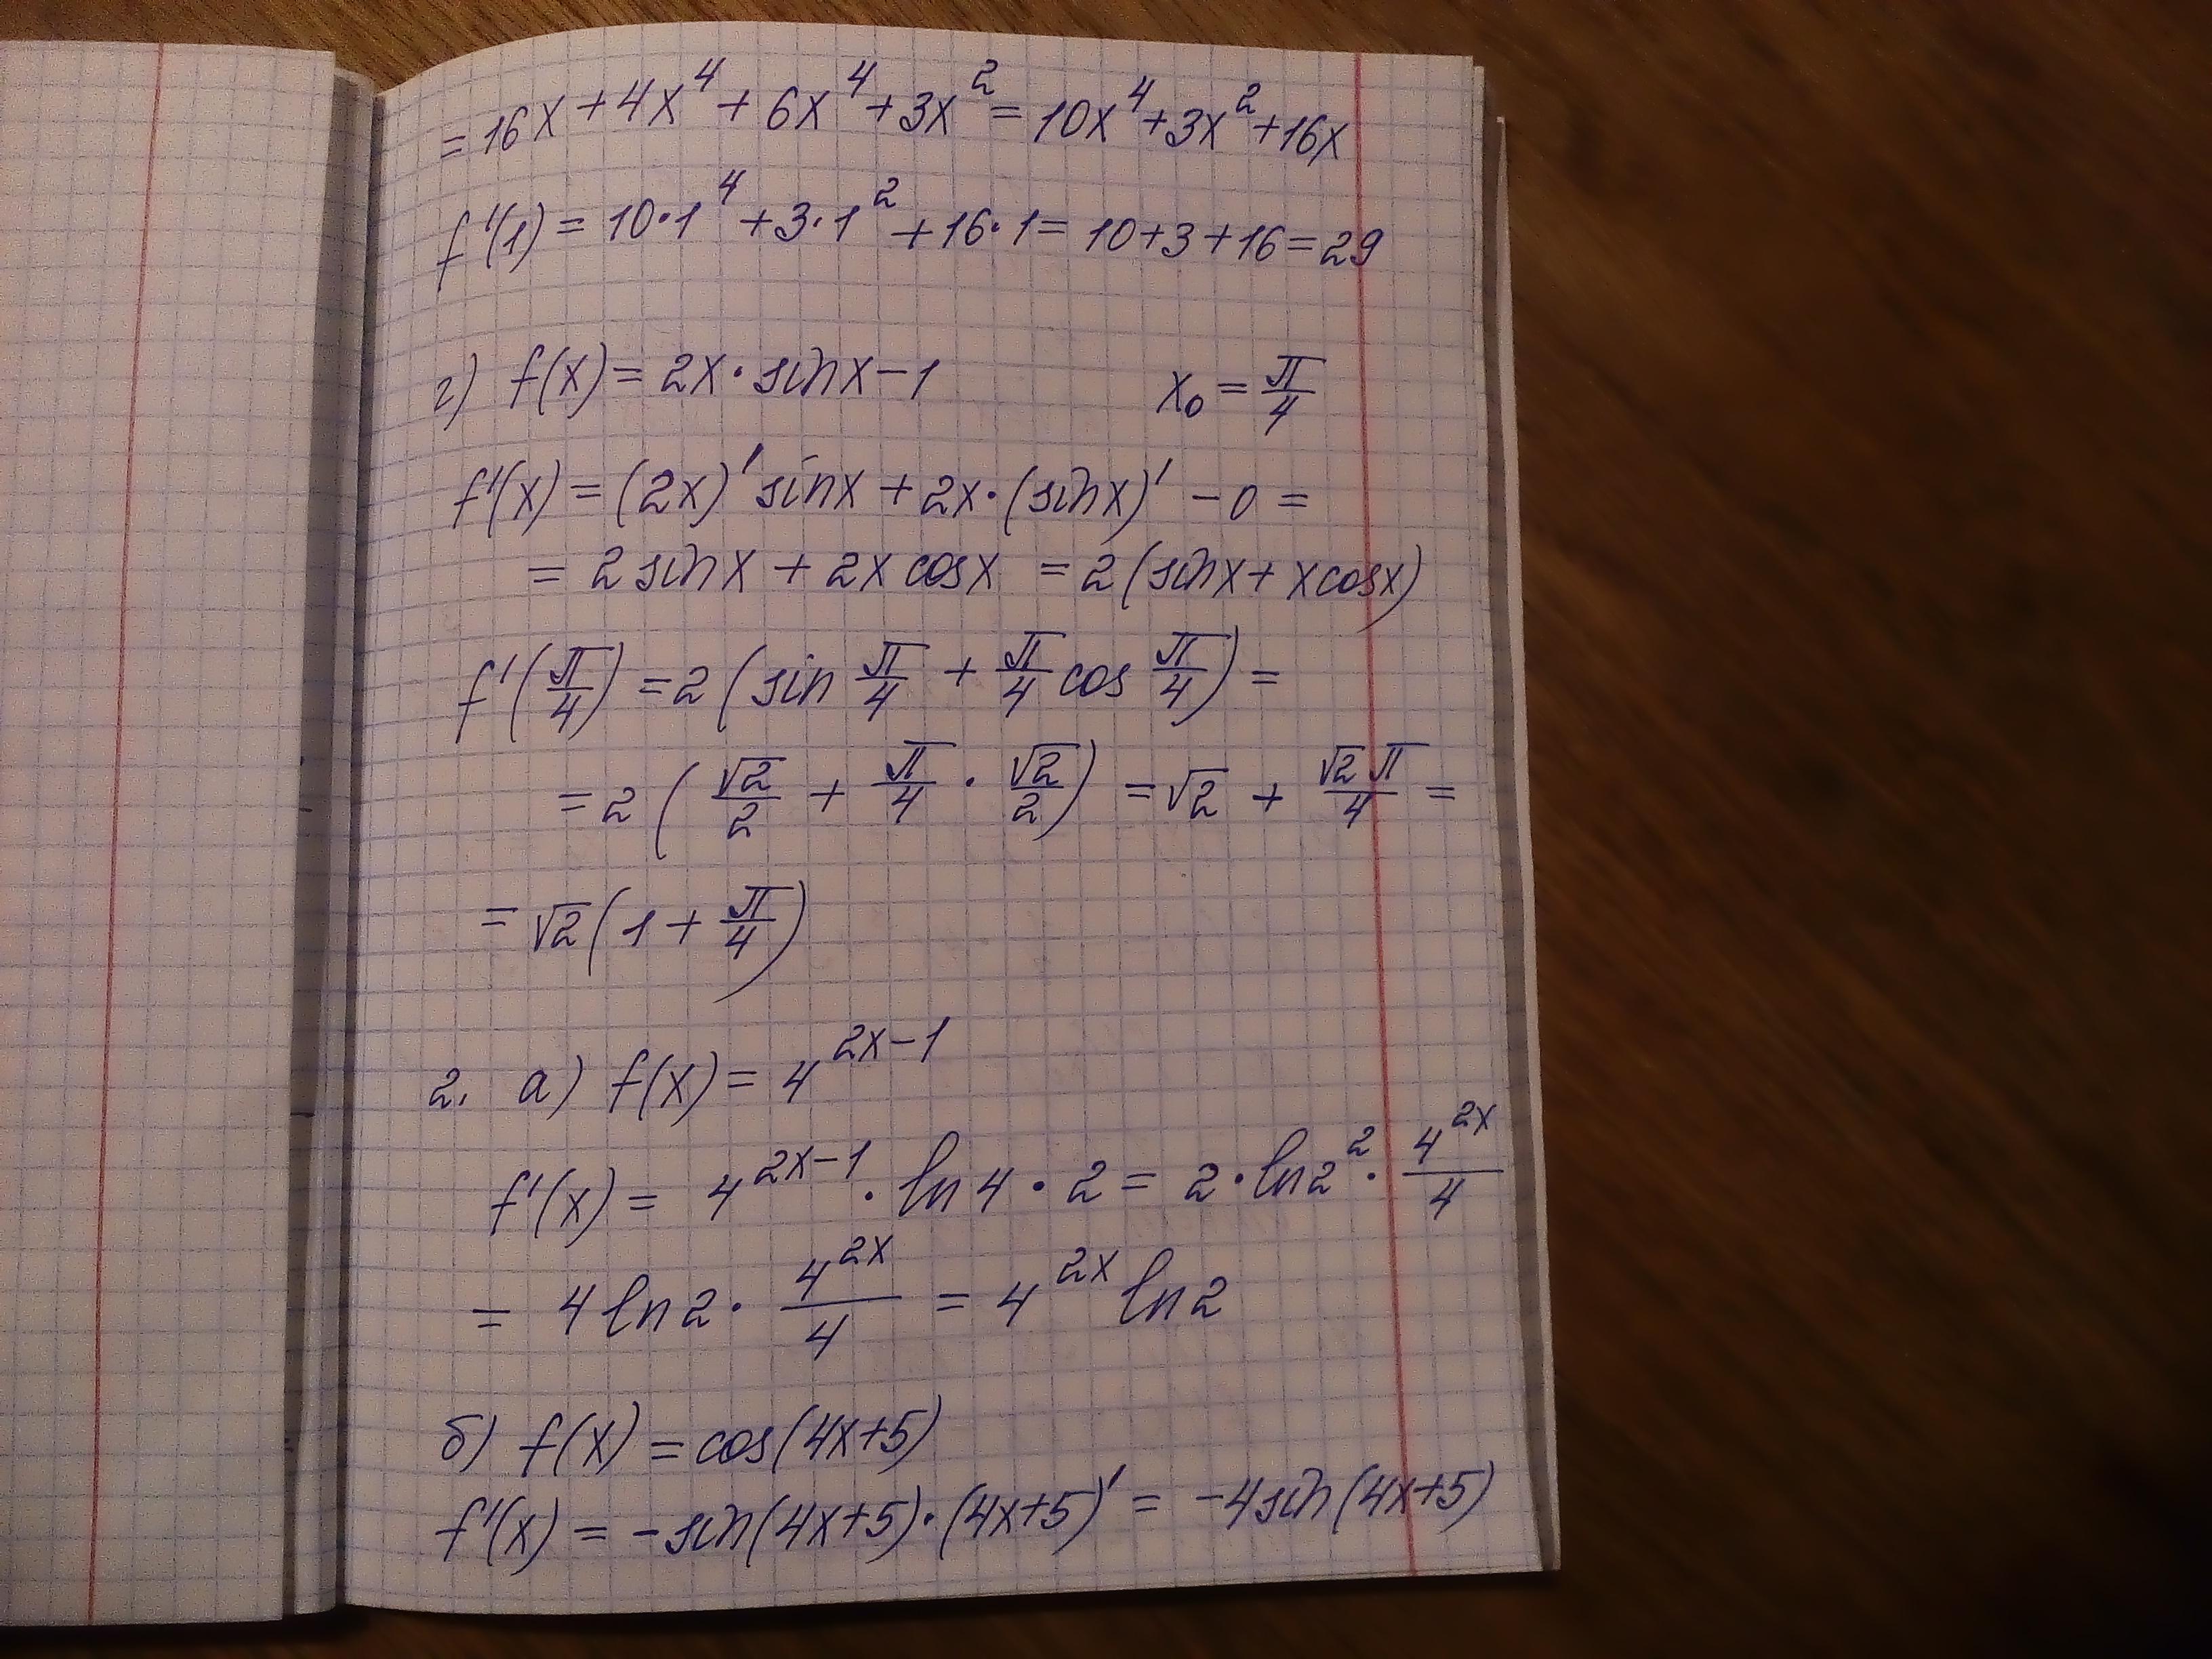 = 16x + 4x⁴ + 6x⁴ + 3x² = 10x⁴ + 3x² + 16x
f'(1) = 10·1⁴ + 3·1² + 16·1 = 10 + 3 + 16 = 29
г) f(x) = 2x · sinx − 1 x₀ = π/4
f'(x) = (2x)' sinx + 2x · (sinx)' − 0 =
= 2 sinx + 2x cosx = 2 (sinx + x cosx)
f'(π/4) = 2 (sin π/4 + π/4 cos π/4) =
= 2 (√2/2 + π/4 · √2/2) = √2 + √2 π/4 =
= √2 (1 + π/4)
2. а) f(x) = 4^(2x−1)
f'(x) = 4^(2x−1) · ln 4 · 2 = 2 · ln 2² · 4^(2x)/4
= 4 ln 2 · 4^(2x)/4 = 4^(2x) ln 2
б) f(x) = cos(4x+5)
f'(x) = − sin(4x+5) · (4x+5)' = −4 sin(4x+5)